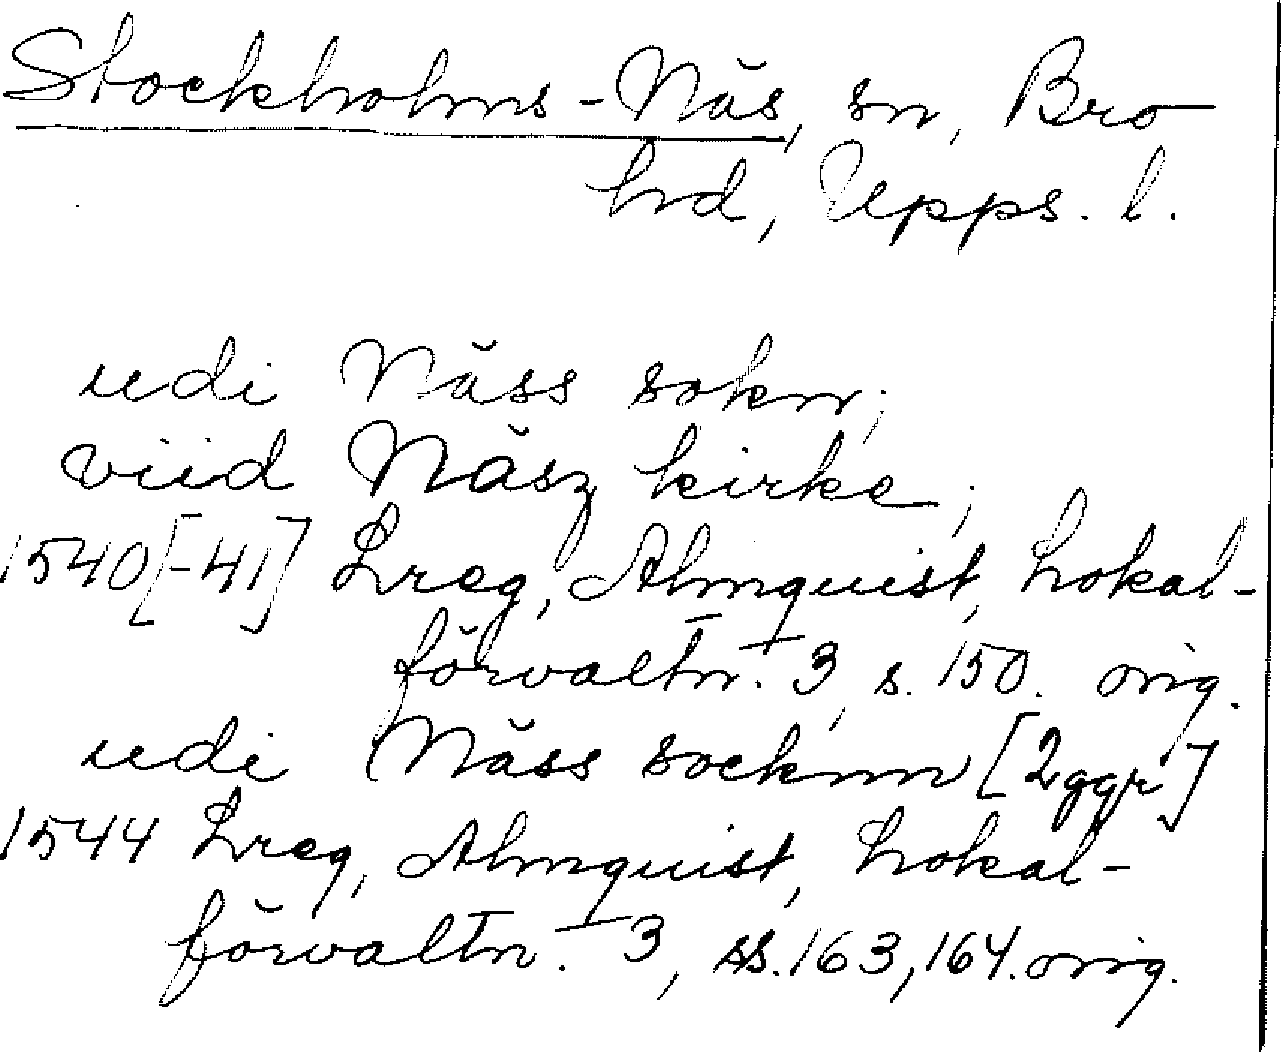 Stockholms-Näs, sn, Bro
hd, Upps. l.
udi Näss sokn;
viid Näsz kirke;
1540[-41] Lreg, Almquist, Lokal-
förvaltn. 3, s. 150. orig.
udi Näss socknn [2 ggr]
1544 Lreg, Almquist, Lokal-
förvaltn. 3, ss. 163, 164. orig.